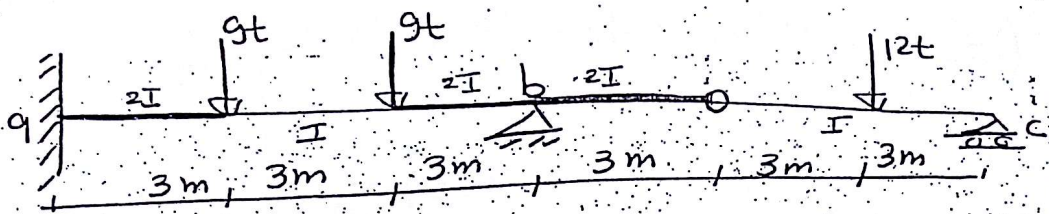 9t 9t 12t
a 2I I 2I b 2I I c
3m 3m 3m 3m 3m 3m